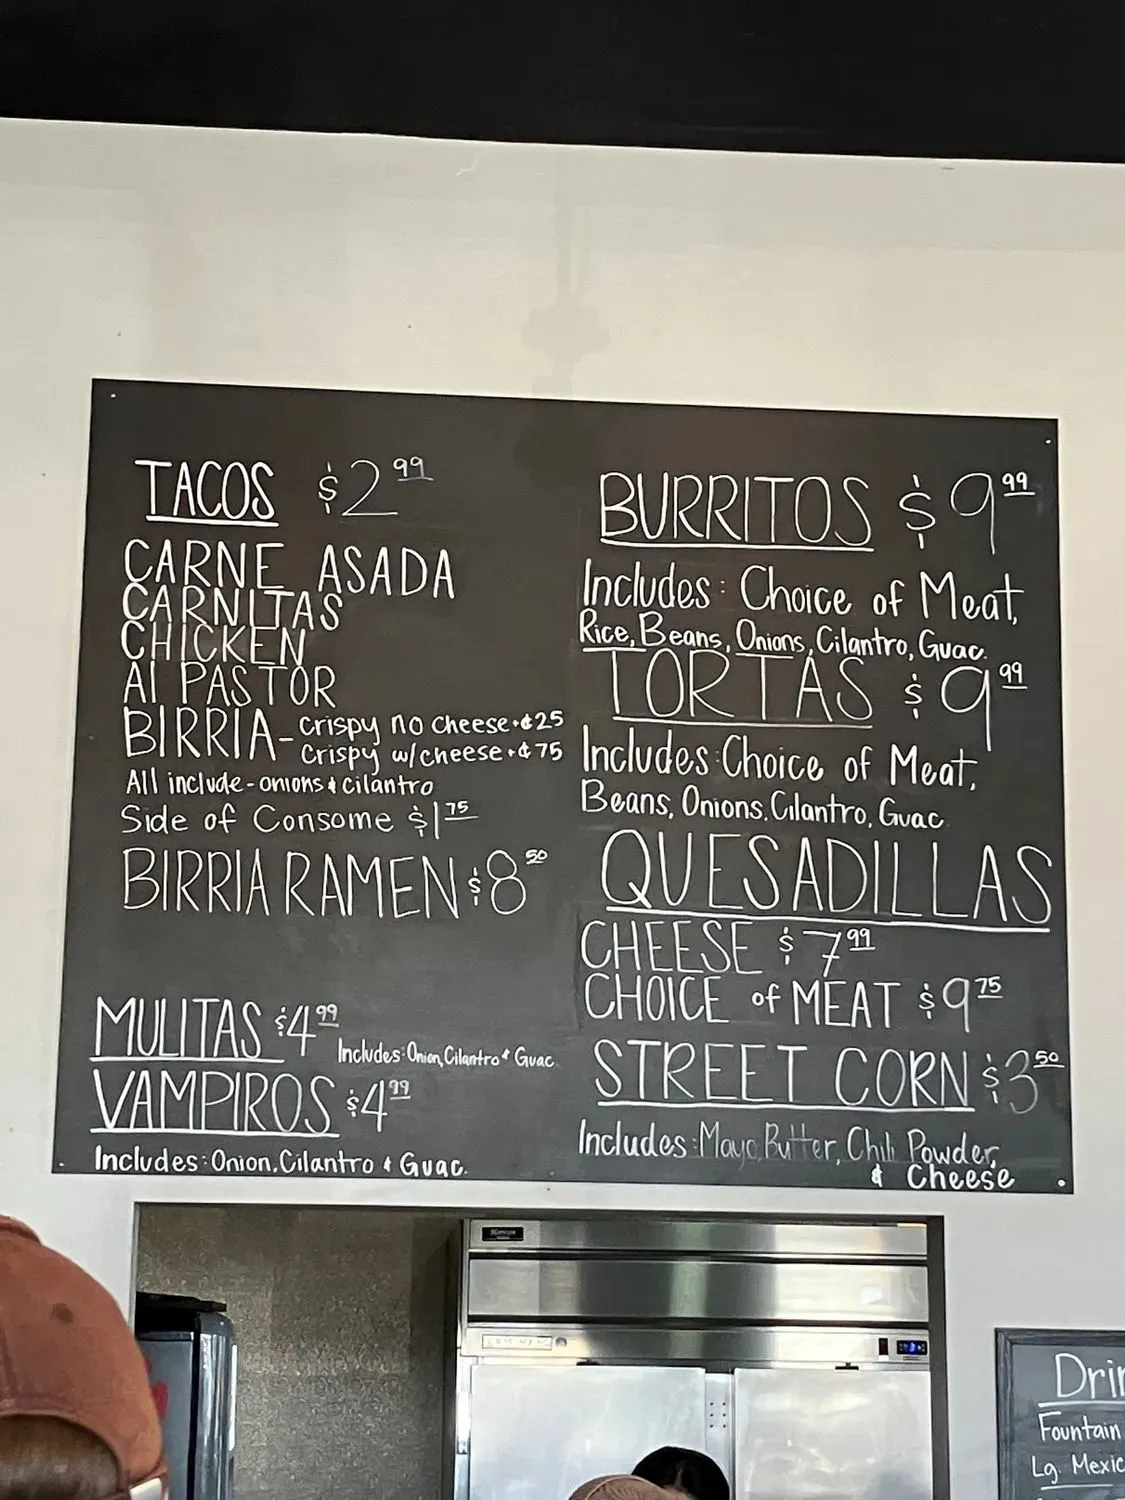 TACOS $2.99
CARNE ASADA
CARNITAS
CHICKEN
Al PASTOR
BIRRIA - Crispy no cheese + ¢25
Crispy w/cheese + ¢75
All include - onions & cilantro
Side of Consome $1.75
BIRRIA RAMEN $8.50
MULITAS $4.99
Includes: Onion, Cilantro & Guac.
VAMPIROS $4.99
Includes: Onion, Cilantro & Guac.
BURRITOS $9.99
Includes: Choice of Meat,
Rice, Beans, Onions, Cilantro, Guac.
TORTAS $9.99
Includes: Choice of Meat,
Beans, Onions, Cilantro, Guac
QUESADILLAS
CHEESE $7.99
CHOICE of MEAT $9.75
STREET CORN $3.50
Includes: Mayo, Butter, Chili Powder,
& Cheese
Fountain
Lg. Mexic